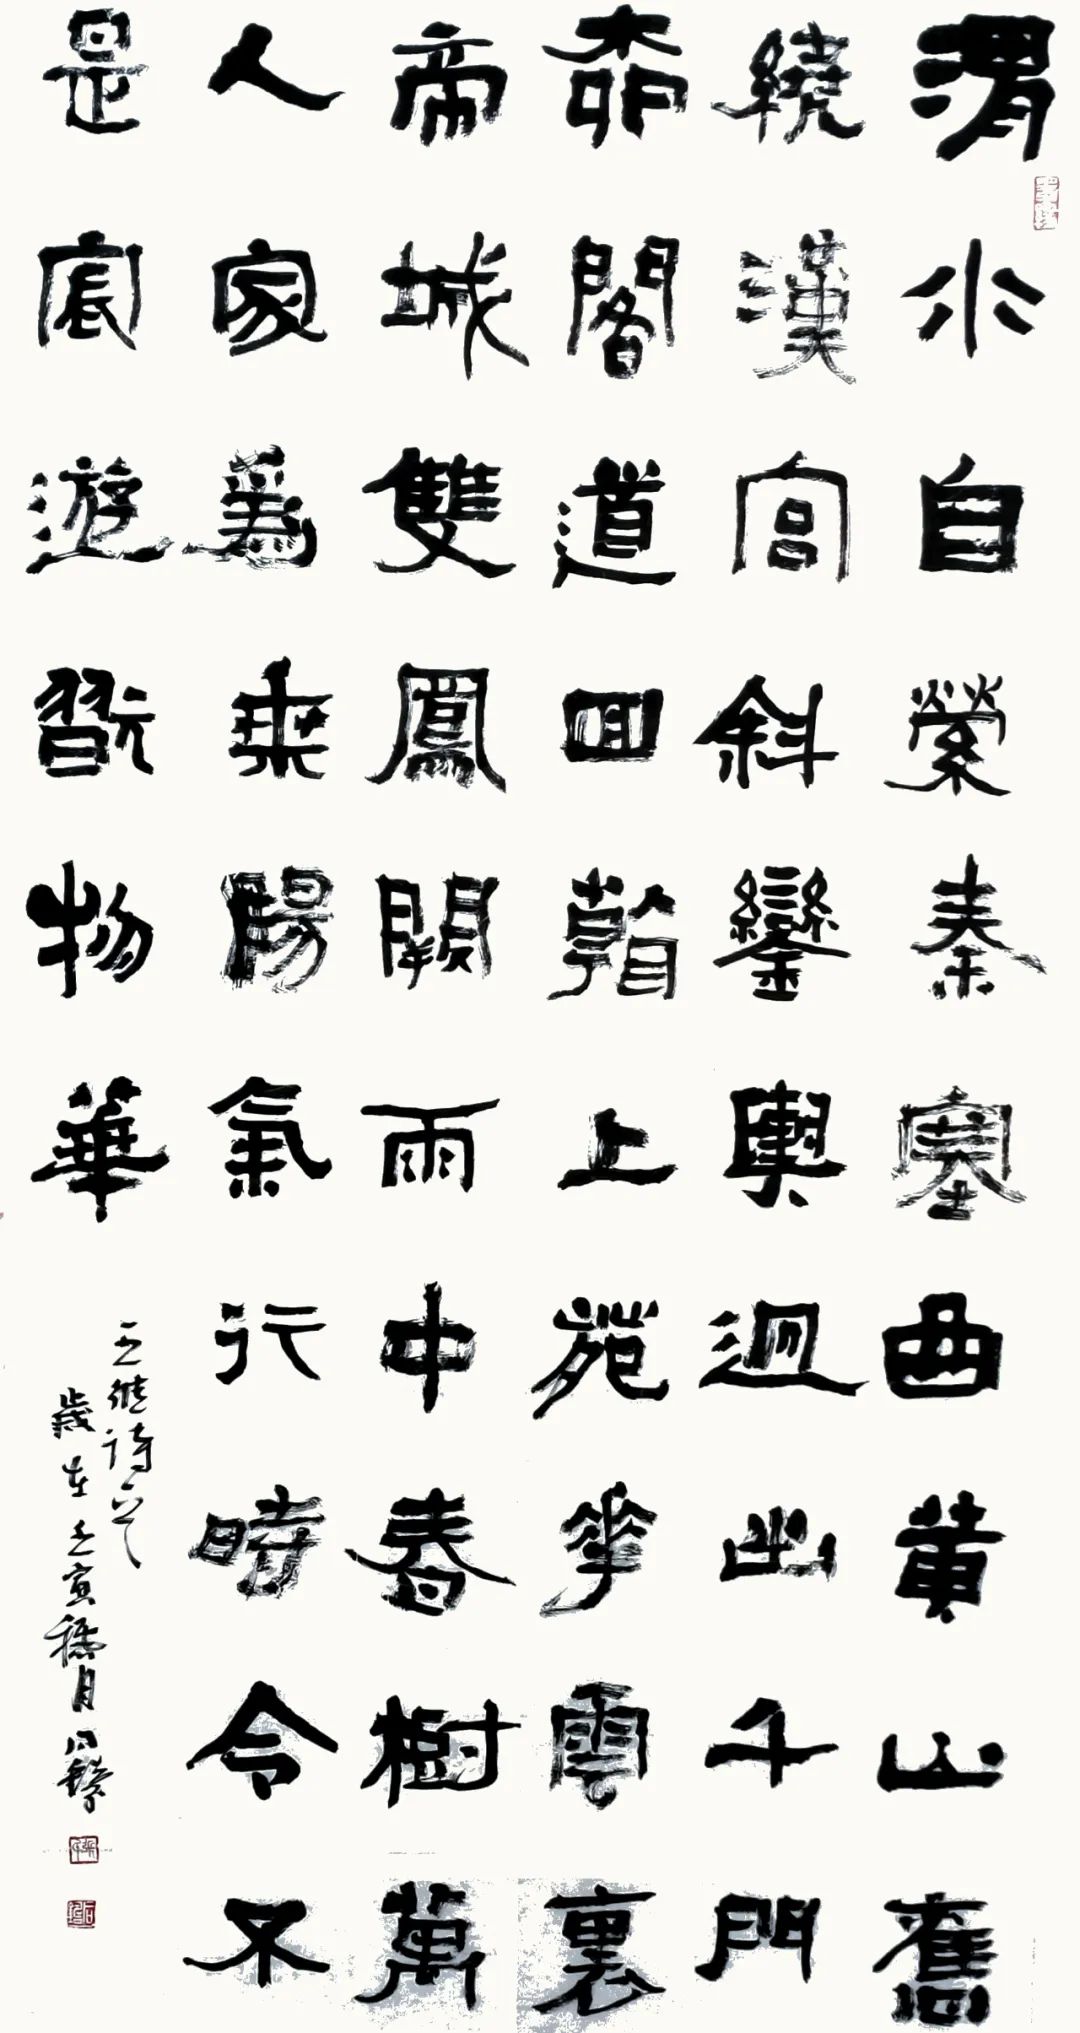 渭水自縈秦塞曲黃山舊
繞漢宮斜鑾輿迴出千門
柳閣道回看上苑花雲裏
帝城雙鳳闕雨中春樹萬
人家爲乘陽氣行時令不
是宸遊翫物華
王維詩一首
歲在壬寅穐月